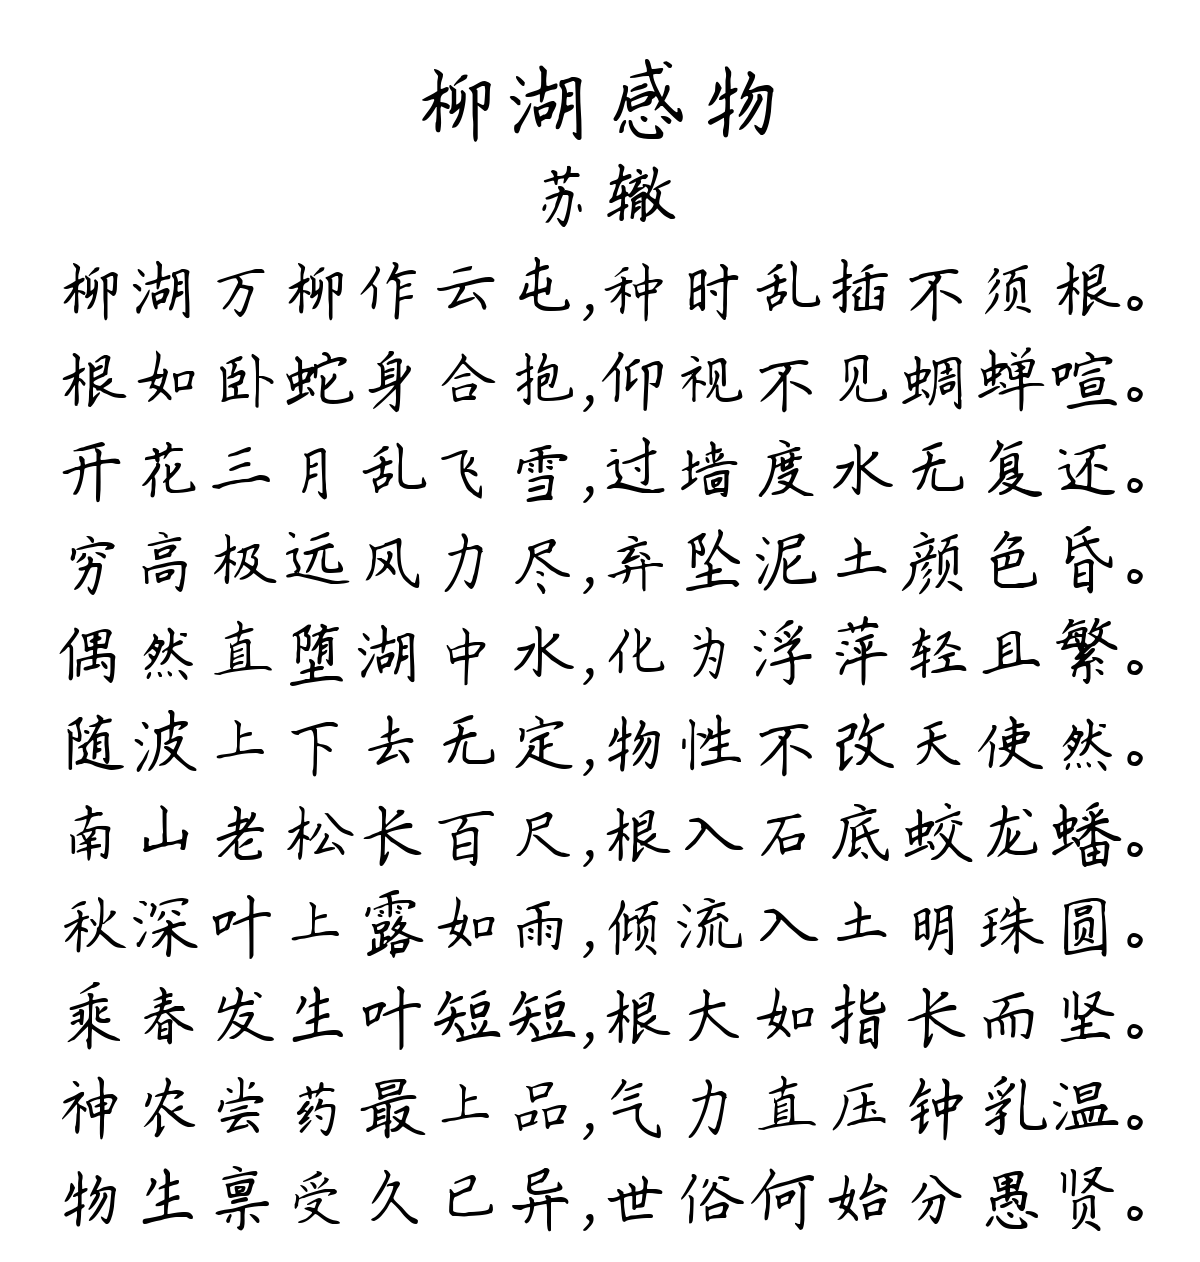 柳湖感物
苏辙
柳湖万柳作云屯,种时乱插不须根。
根如卧蛇身合抱,仰视不见蜩蝉喧。
开花三月乱飞雪,过墙度水无复还。
穷高极远风力尽,弃坠泥土颜色昏。
偶然直堕湖中水,化为浮萍轻且繁。
随波上下去无定,物性不改天使然。
南山老松长百尺,根入石底蛟龙蟠。
秋深叶上露如雨,倾流入土明珠圆。
乘春发生叶短短,根大如指长而坚。
神农尝药最上品,气力直压钟乳温。
物生禀受久已异,世俗何始分愚贤。